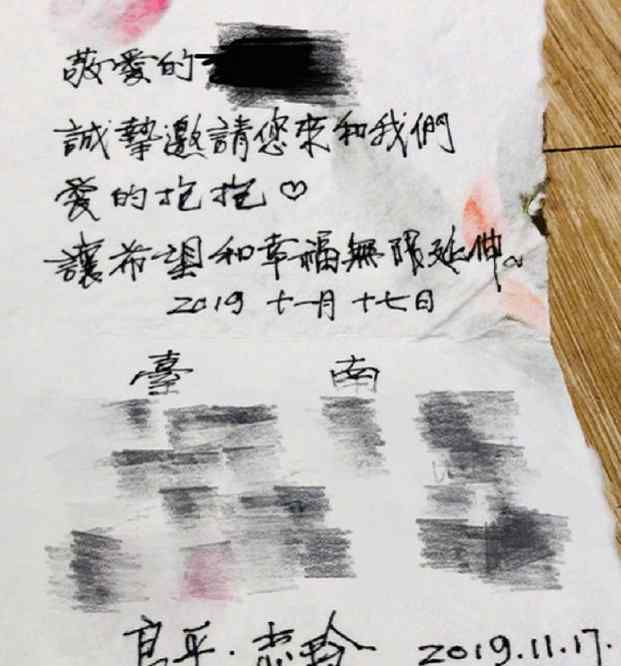 敬愛的
誠摯邀請您來和我們
愛的抱抱♡
讓希望和幸福無限延伸。
2019 十一月 十七日
臺 南
良平．志玲 2019.11.17.